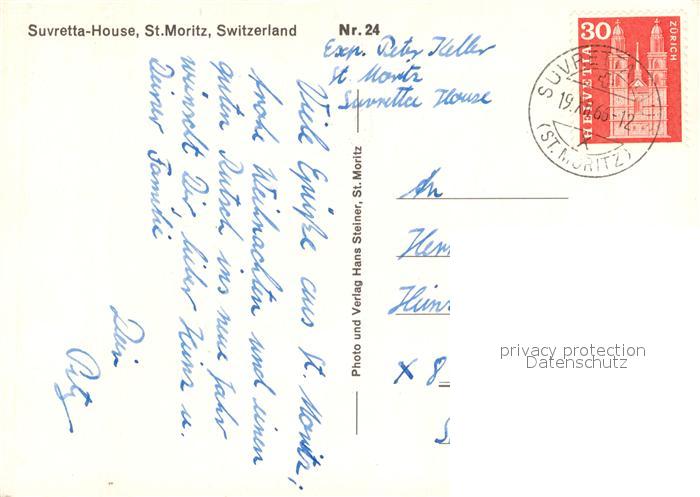 Suvretta-House, St.Moritz, Switzerland
Nr. 24
Exp. Peter Keller
St. Moritz
Suvretta House
Viele Grüsse aus St. Moritz,
frohe Weihnachten und einen
guten Rutsch ins neue Jahr
wünscht Dir lieber Heinz u.
Deiner Familie
Dein
Photo und Verlag Hans Steiner, St. Moritz
30
HELVETIA
ZÜRICH
(ST. MORITZ)
An
Her
Hein
x 8
privacy protection
Datenschutz